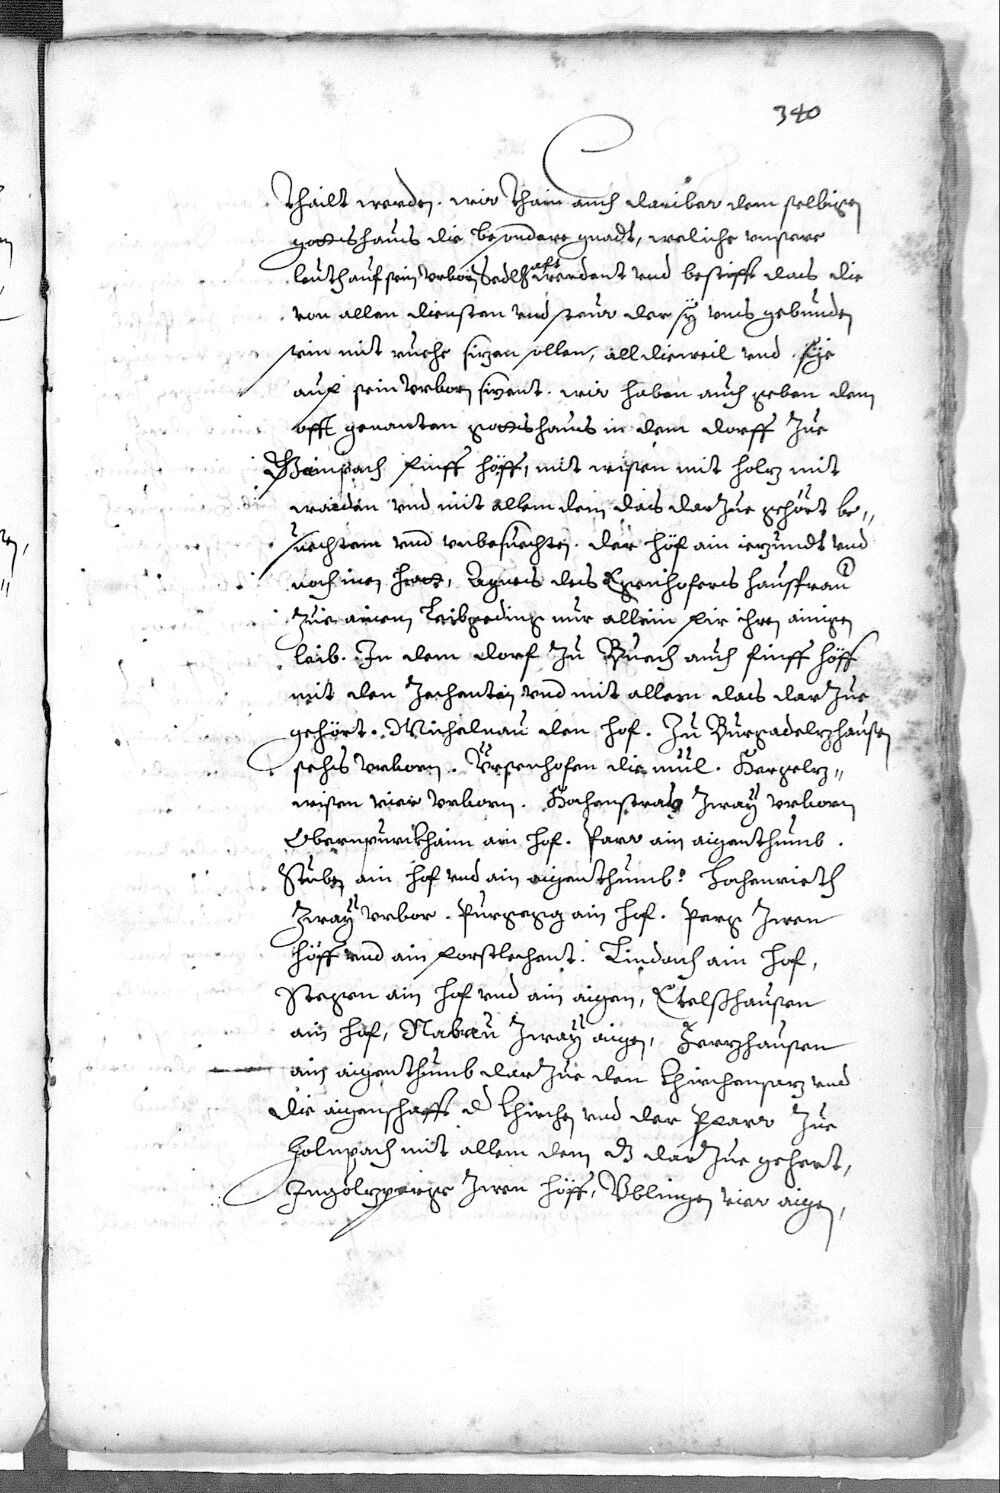 340
thailt werden. wir thain auch dariber dem selbigen
gottshaus die besondere gnadt, weliche unsere
leuth auf sein urborn sedlhafft werdent und besizst das die
von allen diensten und steur der sy uns gebunden
sein mit ruche sizen sollen, all dieweil und sye
auf sein urborn sizent. wir haben auch geben dem
offt genanten gottshaus in dem dorff Zue
Bainpach finff höff, mit wisen mit holz mit
waiden und mit allem dem das dar Zue gehört be„
suechtem und unbesuechten. der höf ain iezundt und
noch inen hatt, Agnes des Egenhofers hausfrau
Zue ainem leibgeding nur allein fir ihren ainigen
leib. In dem dorf Zu Buech auch finff höff
mit den Zechenten und mit allem das dar Zue
gehört. Michelnau den hof. Zu Burgadelzhausen
sechs urborn. Ursenhofen die mül. Hergelz„
wisen vier urborn. Hochenstras Zway urborn
Obernpurckhaim ain hof. Parr ain aigenthumb.
Stuben ain hof und ain aigenthumb. Hochenrieth
Zway urbor. Purgegg ain hof. Perg Zwen
höff und ain forstlechent. Lindach ain hof,
Stegen ain hof und ain aigen, Etelshausen
ain hof, Nabreu Zway aigen, Herzhausen
ain aigenthumb dar Zue den khirchensaz und
die aigenschafft d khirchen und der Pfarr Zue
Holnpach mit allem dem dz dar Zue gehert,
Ingolzperge Zwen höff, Üblingen vier aigen,